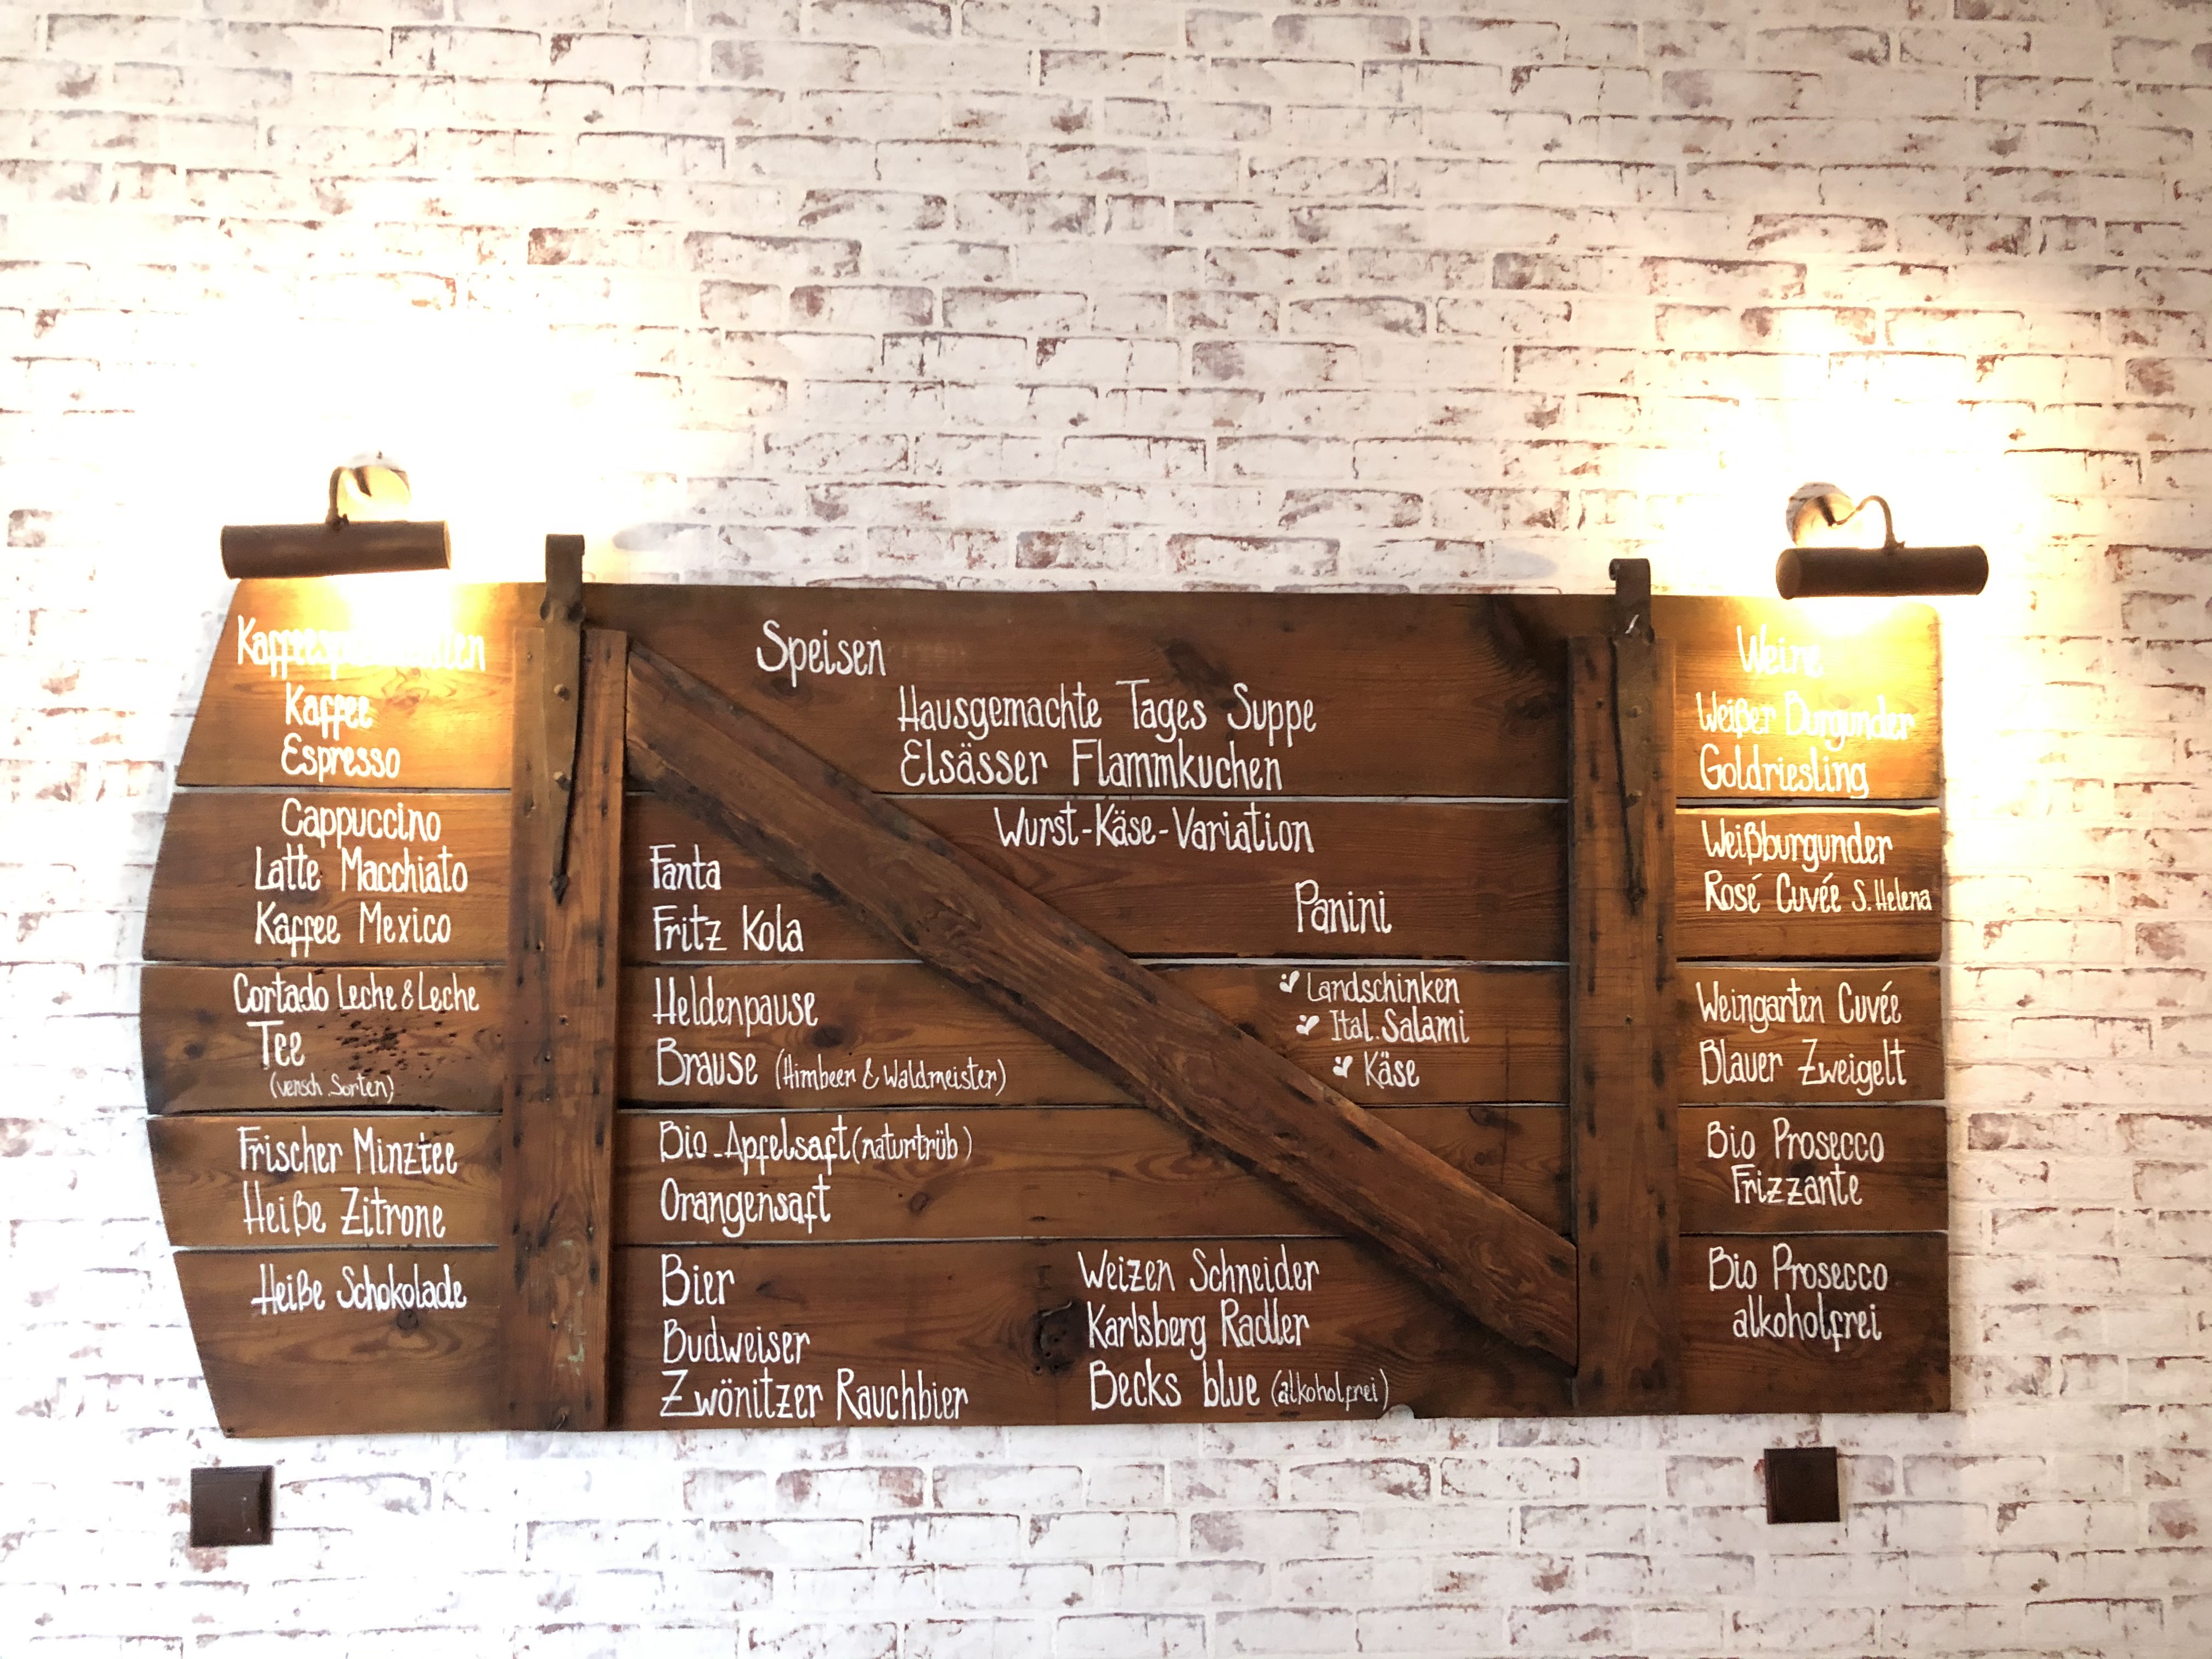 Kaffeespezialitäten
Kaffee
Espresso
Cappuccino
Latte Macchiato
Kaffee Mexico
Cortado Leche & Leche
Tee
(versch. Sorten)
Frischer Minztee
Heiße Zitrone
Heiße Schokolade
Speisen
Hausgemachte Tages Suppe
Elsässer Flammkuchen
Wurst-Käse-Variation
Panini
Landschinken
Ital. Salami
Käse
Fanta
Fritz Kola
Heldenpause
Brause (Himbeer & Waldmeister)
Bio-Apfelsaft (naturtrüb)
Orangensaft
Bier
Budweiser
Zwönitzer Rauchbier
Weizen Schneider
Karlsberg Radler
Becks blue (alkoholfrei)
Weine
Weißer Burgunder
Goldriesling
Weißburgunder
Rosé Cuvée S. Helena
Weingarten Cuvée
Blauer Zweigelt
Bio Prosecco
Frizzante
Bio Prosecco
alkoholfrei